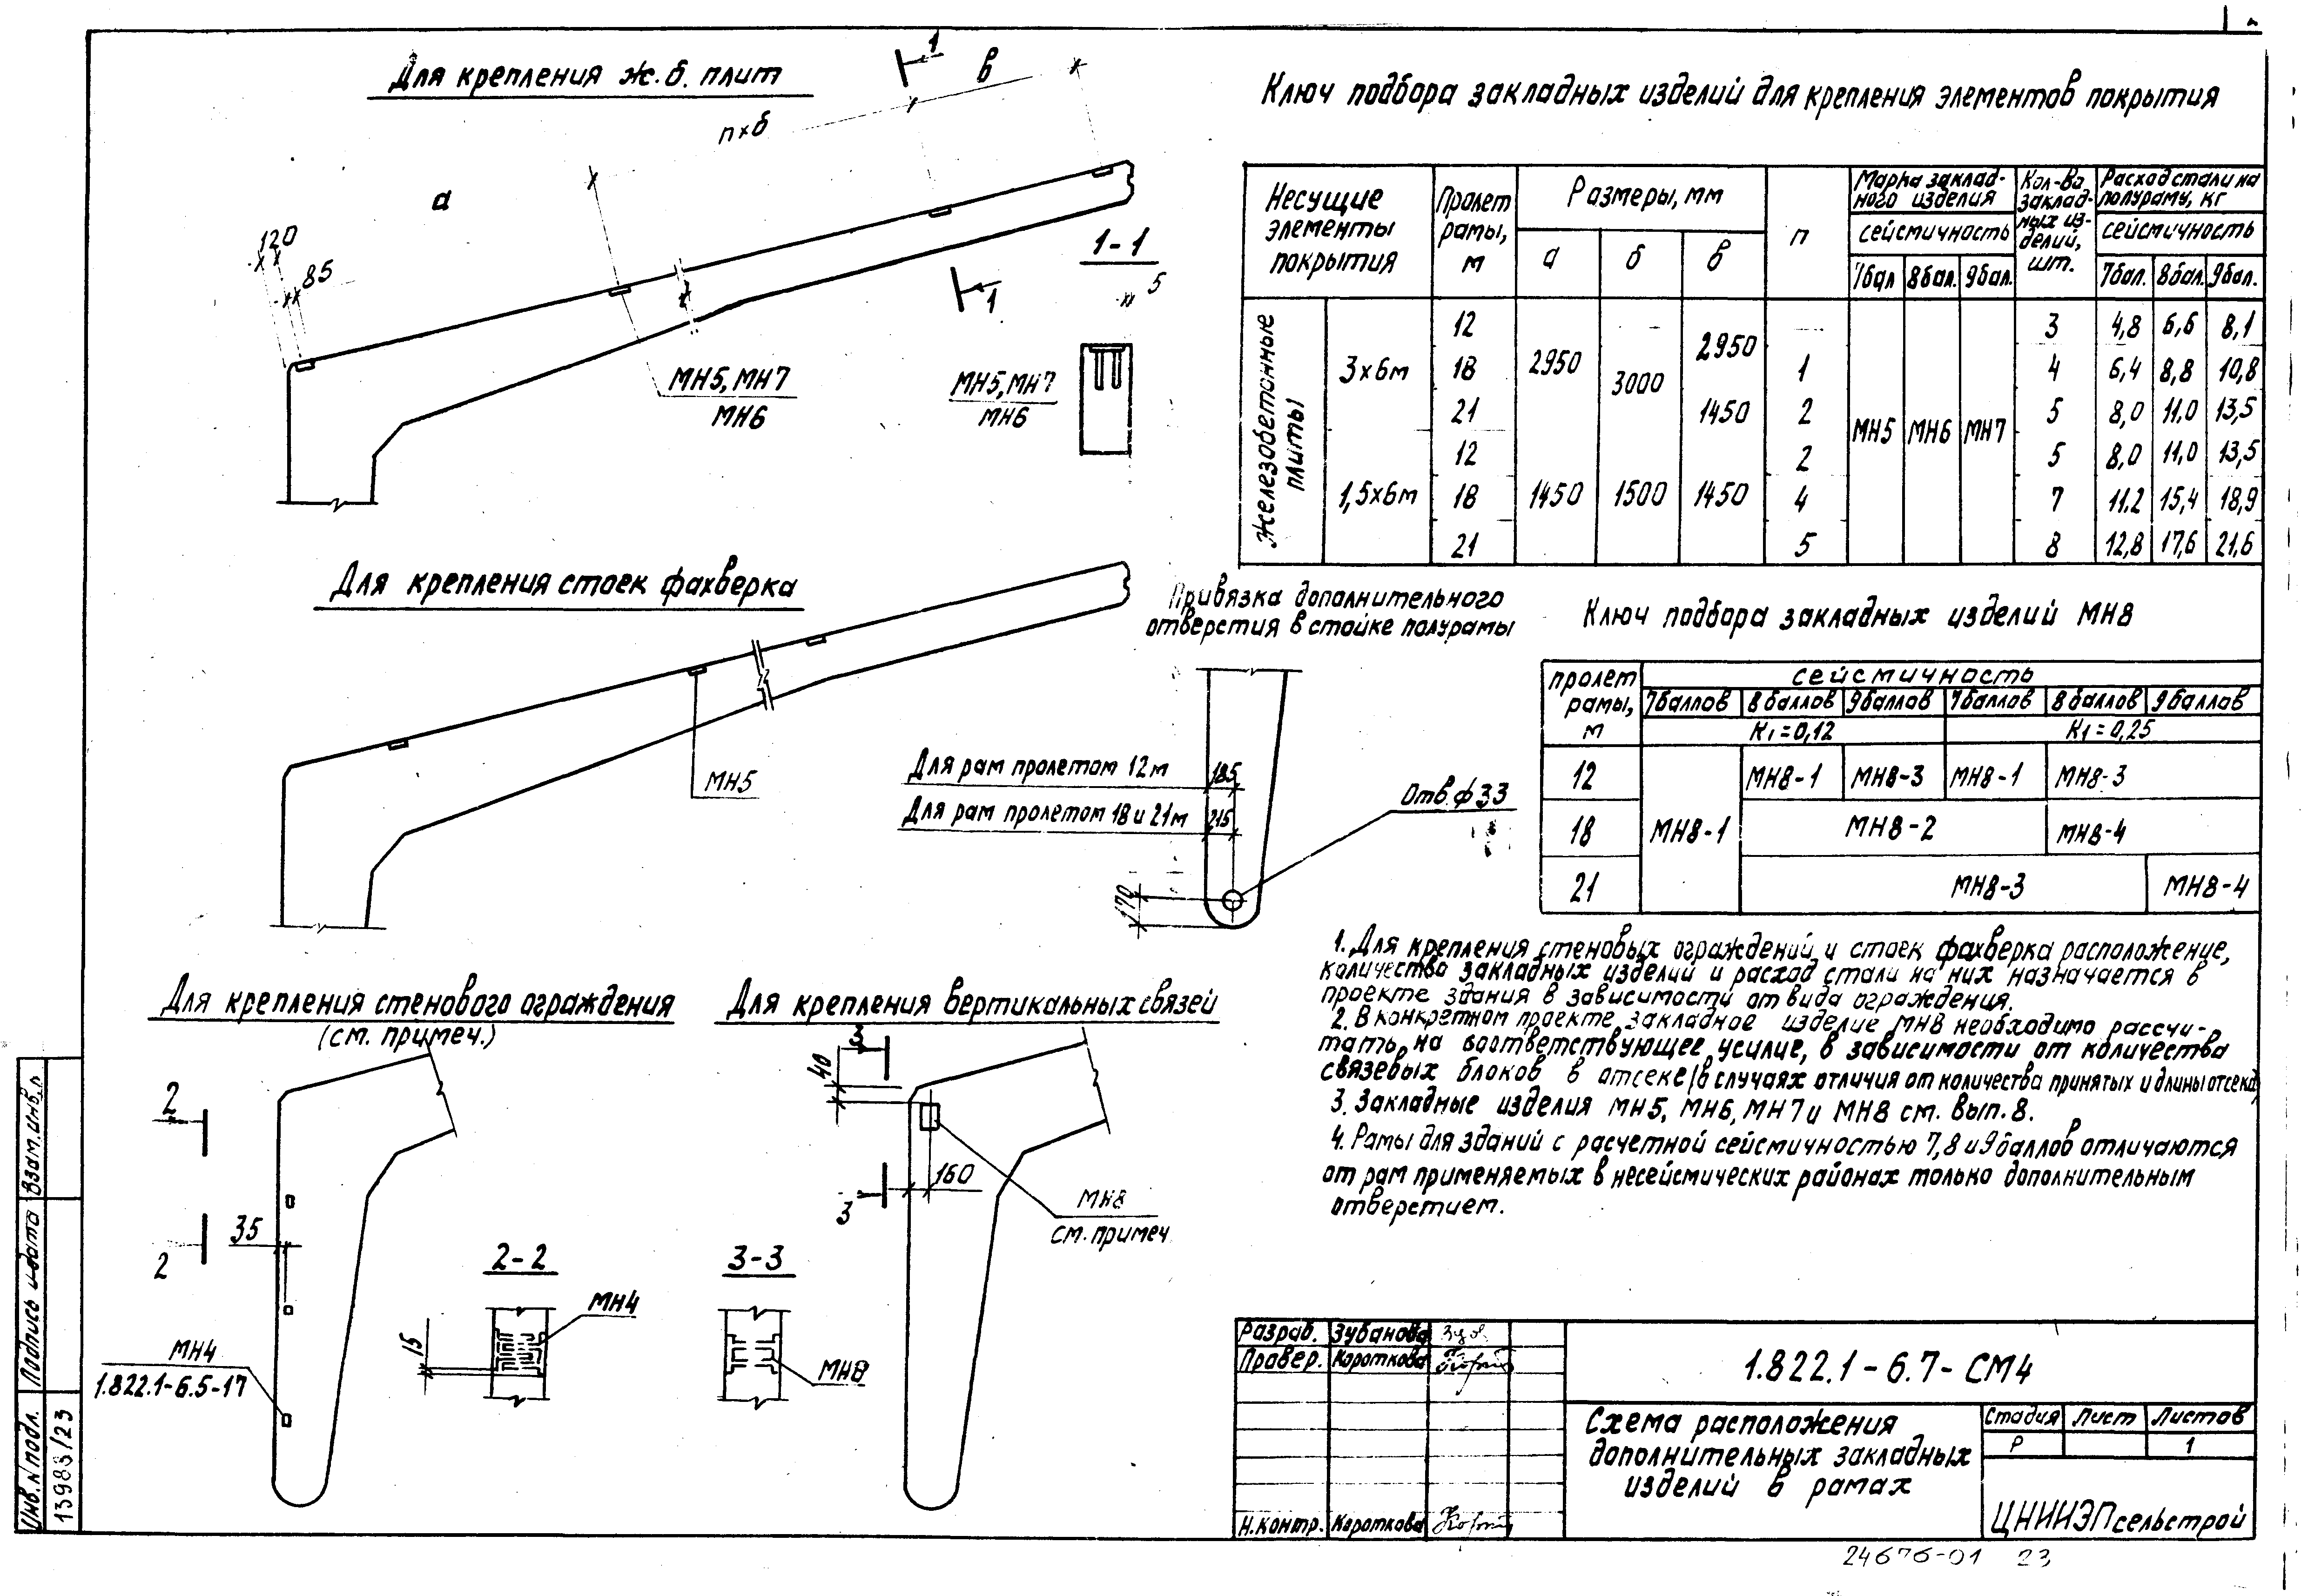 Для крепления ж.б. плит
1
в
п×б
а
120
85
1-1
5
1
МН5, МН7
МН6
МН5, МН7
МН6
Ключ подбора закладных изделий для крепления элементов покрытия
Несущие элементы покрытия
Пролет рамы, м
Размеры, мм
а
б
в
п
Марка закладного изделия
сейсмичность
7бал 8бал. 9бал.
Кол-во закладных изделий, шт.
Расход стали на полураму, кг
сейсмичность
7бал. 8бал. 9бал.
Железобетонные плиты
3×6м
12 — 2950 — 3 4,8 6,6 8,1
18 2950 3000 1 4 6,4 8,8 10,8
21 1450 2 5 8,0 11,0 13,5
МН5 МН6 МН7
12 2 5 8,0 11,0 13,5
1,5×6м 18 1450 1500 1450 4 7 11,2 15,4 18,9
21 5 8 12,8 17,6 21,6
Для крепления стоек фахверка
МН5
Привязка дополнительного
отверстия в стойке полурамы
Для рам пролетом 12м 185
Для рам пролетом 18 и 21м 215
Отв. ф33
170
Ключ подбора закладных изделий МН8
пролет рамы, м
сейсмичность
7баллов 8баллов 9баллов 7баллов 8баллов 9баллов
К1=0,12 К1=0,25
12 МН8-1 МН8-3 МН8-1 МН8-3
18 МН8-1 МН8-2 МН8-4
21 МН8-3 МН8-4
1. Для крепления стеновых ограждений и стоек фахверка расположение,
количество закладных изделий и расход стали на них назначается в
проекте здания в зависимости от вида ограждения.
2. В конкретном проекте закладное изделие МН8 необходимо рассчи-
тать на соответствующее усилие, в зависимости от количества
связевых блоков в отсеке (в случаях отличия от количества принятых и длины отсека)
3. Закладные изделия МН5, МН6, МН7 и МН8 см. Вып. 8.
4. Рамы для зданий с расчетной сейсмичностью 7, 8 и 9 баллов отличаются
от рам применяемых в несейсмических районах только дополнительным
отверстием.
Для крепления стенового ограждения
(см. примеч.)
2
2
35
МН4
1.822.1-6.5-17
2-2
МН4
15
Для крепления вертикальных связей
3
40
160
3
МН8
см. примеч.
3-3
МН8
Разраб. Зубанова
Провер. Короткова
Н.контр. Короткова
1.822.1-6.7-СМ4
Схема расположения
дополнительных закладных
изделий в рамах
Стадия Лист Листов
Р 1
ЦНИИЭПсельстрой
24676-01 23
Взам. инв. №
Подпись и дата
Инв. № подл.
13983/23